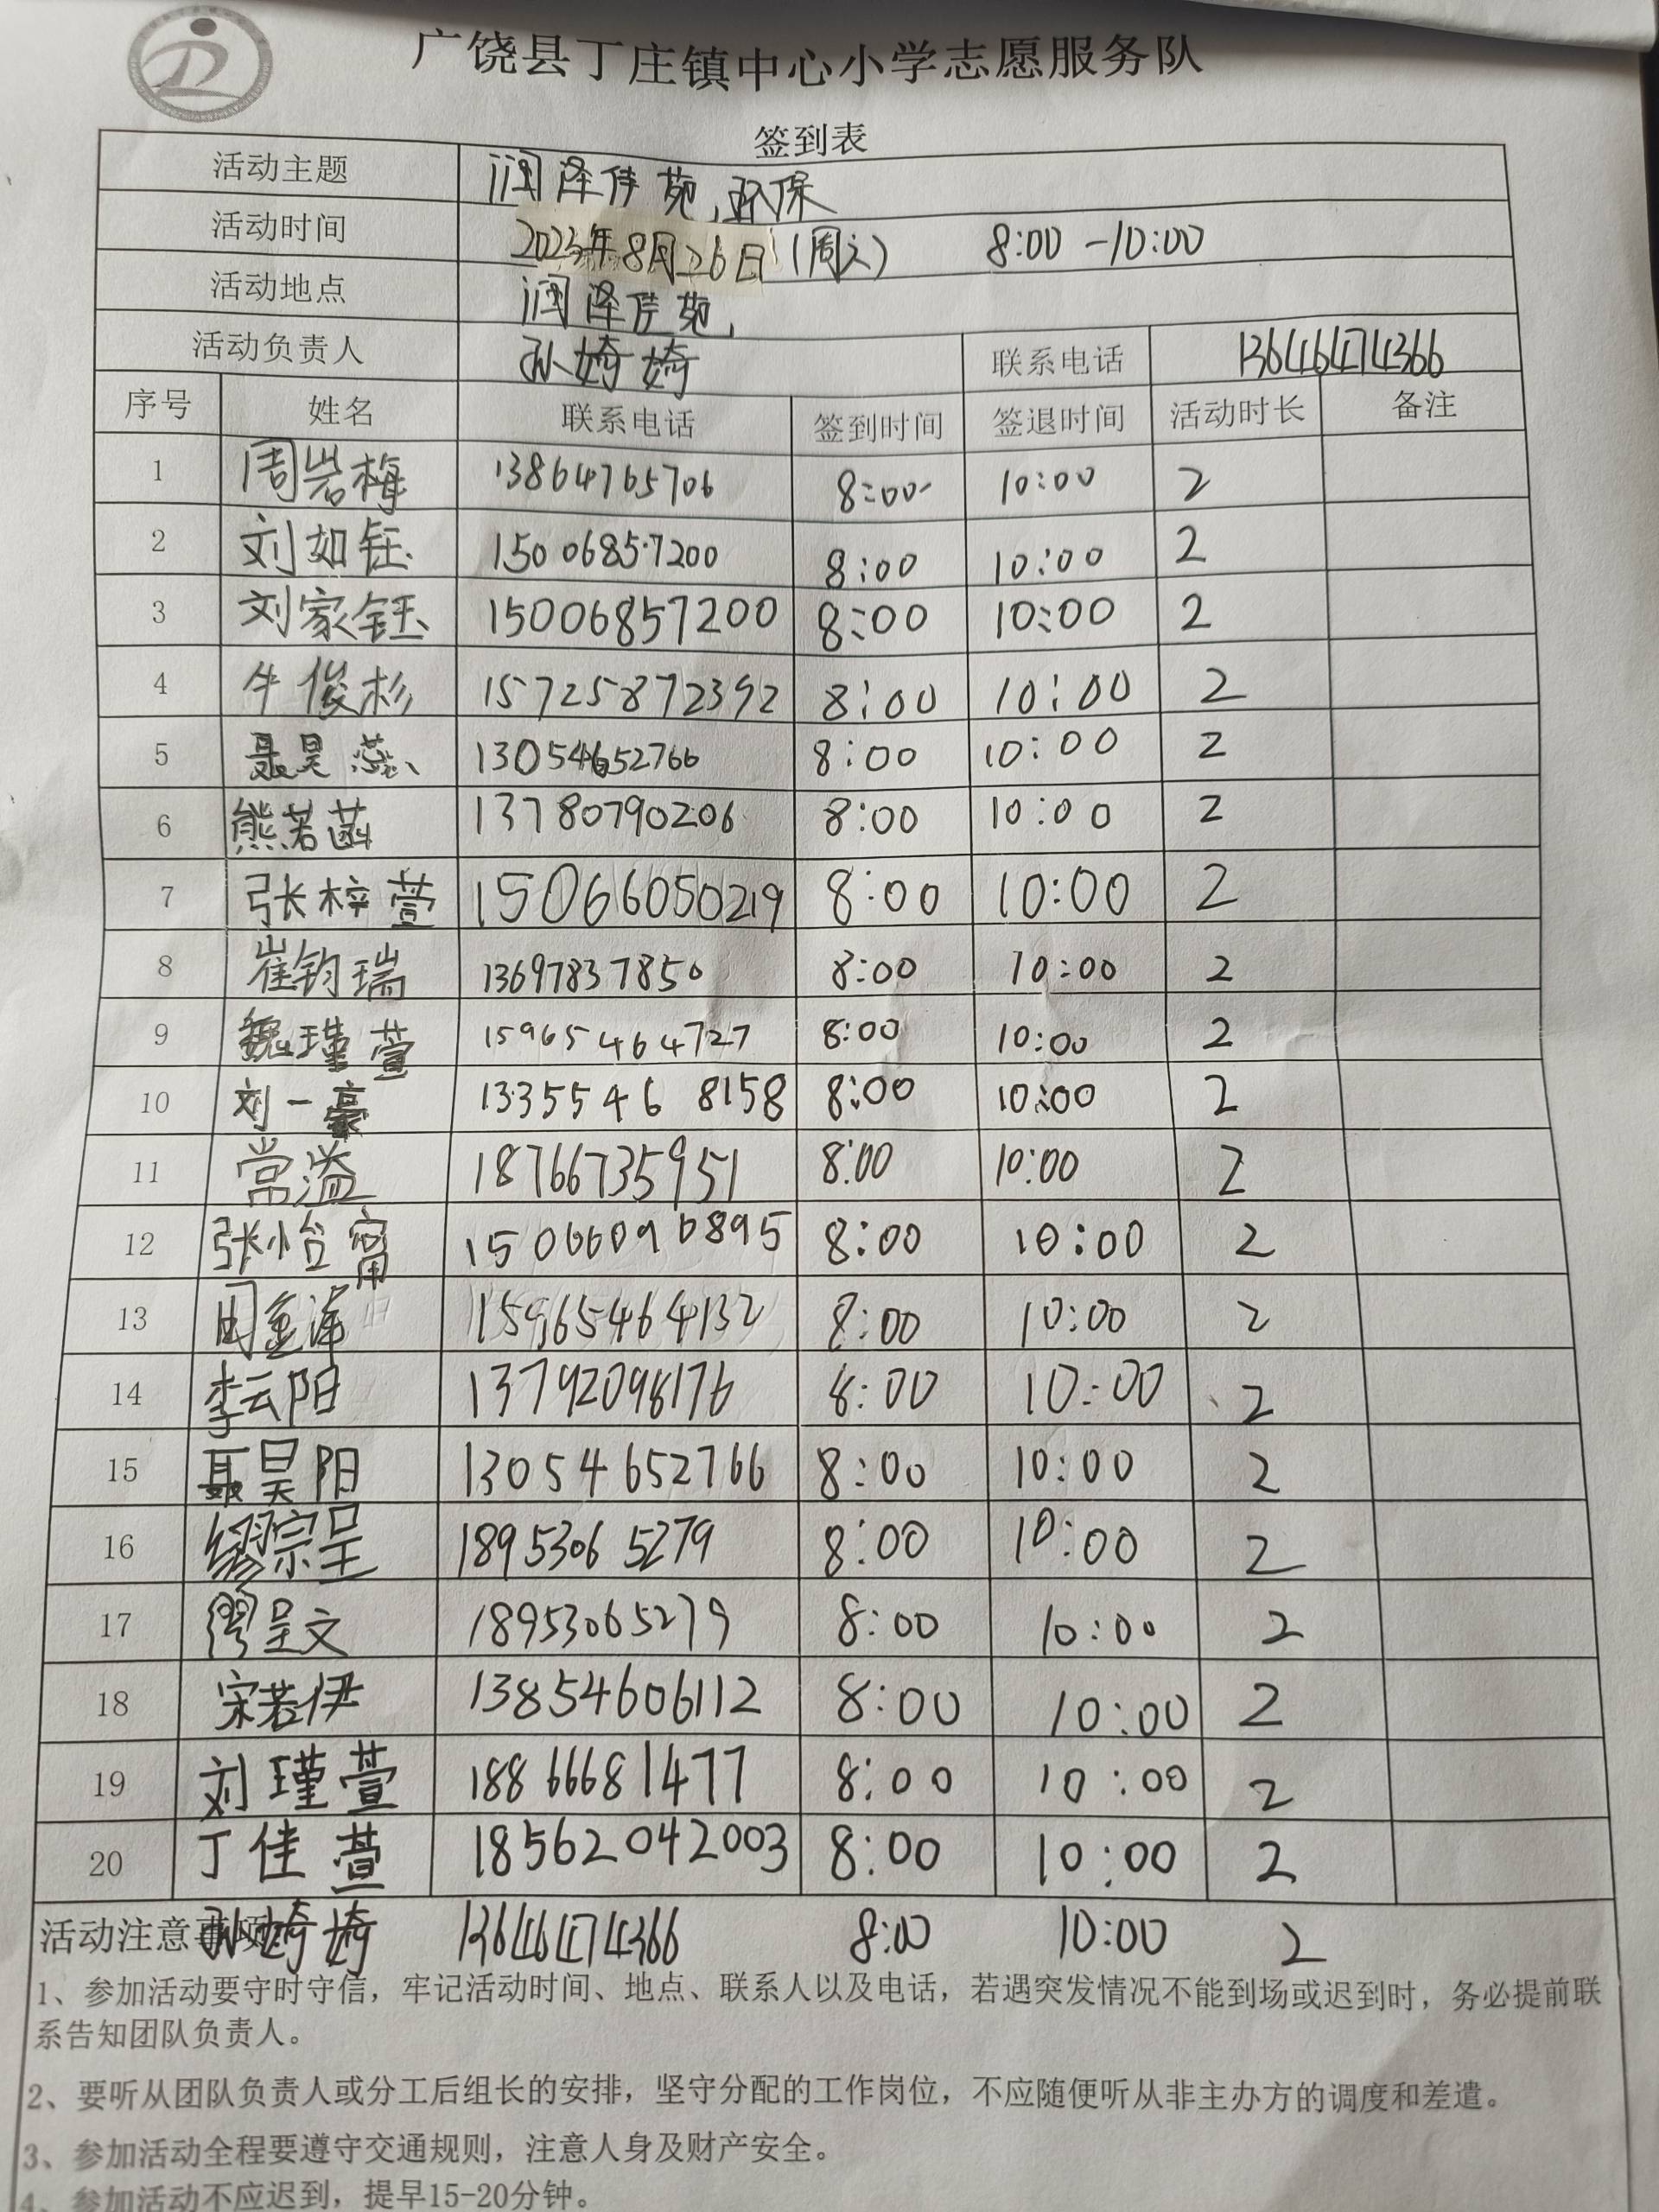 广饶县丁庄镇中心小学志愿服务队
签到表
活动主题 润泽佳苑,环保
活动时间 2023年8月26日(周六) 8:00-10:00
活动地点 润泽佳苑,
活动负责人 孙婍婍 联系电话 13646474366
序号 姓名 联系电话 签到时间 签退时间 活动时长 备注
1 周岩梅 13864765706 8:00 10:00 2
2 刘如钰 15006857200 8:00 10:00 2
3 刘家钰 15006857200 8:00 10:00 2
4 牛俊杉 15725872392 8:00 10:00 2
5 聂昊蕊 13054652766 8:00 10:00 2
6 熊若菡 13780790206 8:00 10:00 2
7 张梓萱 15066050219 8:00 10:00 2
8 崔钧瑞 13697837850 8:00 10:00 2
9 魏瑾萱 15965464727 8:00 10:00 2
10 刘一豪 13355468158 8:00 10:00 2
11 常溢 18766735951 8:00 10:00 2
12 张怡甯 15066090895 8:00 10:00 2
13 周金泽 15965464132 8:00 10:00 2
14 李云阳 13792098176 8:00 10:00 2
15 聂昊阳 13054652766 8:00 10:00 2
16 缪宗呈 18953065279 8:00 10:00 2
17 缪呈文 18953065279 8:00 10:00 2
18 宋若伊 13854606112 8:00 10:00 2
19 刘瑾萱 18866681477 8:00 10:00 2
20 丁佳萱 18562042003 8:00 10:00 2
活动注意事项 孙婍婍 13646474366 8:00 10:00 2
1、参加活动要守时守信，牢记活动时间、地点、联系人以及电话，若遇突发情况不能到场或迟到时，务必提前联
系告知团队负责人。
2、要听从团队负责人或分工后组长的安排，坚守分配的工作岗位，不应随便听从非主办方的调度和差遣。
3、参加活动全程要遵守交通规则，注意人身及财产安全。
4、参加活动不应迟到，提早15-20分钟。